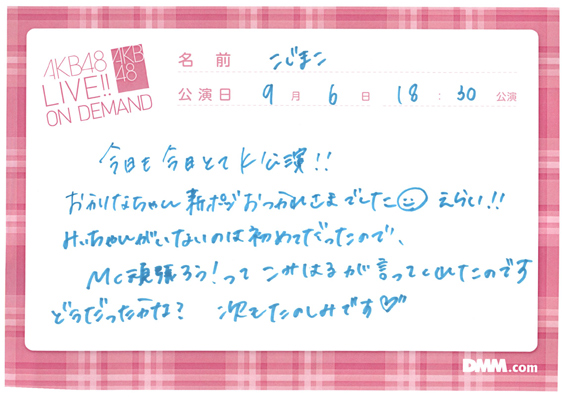 AKB48
LIVE!!
ON DEMAND
AKB
48
名前 こじまこ
公演日 9月6日 18:30 公演
今日も今日とてK公演!!
おかりなちゃん 新ポジおつかれさまでした☺ えらい!!
みぃちゃんがいないのは初めてだったので、
MC頑張ろう!って こサはるが言ってくれたのです
どうだったかな? 次もたのしみです♡
DMM.com